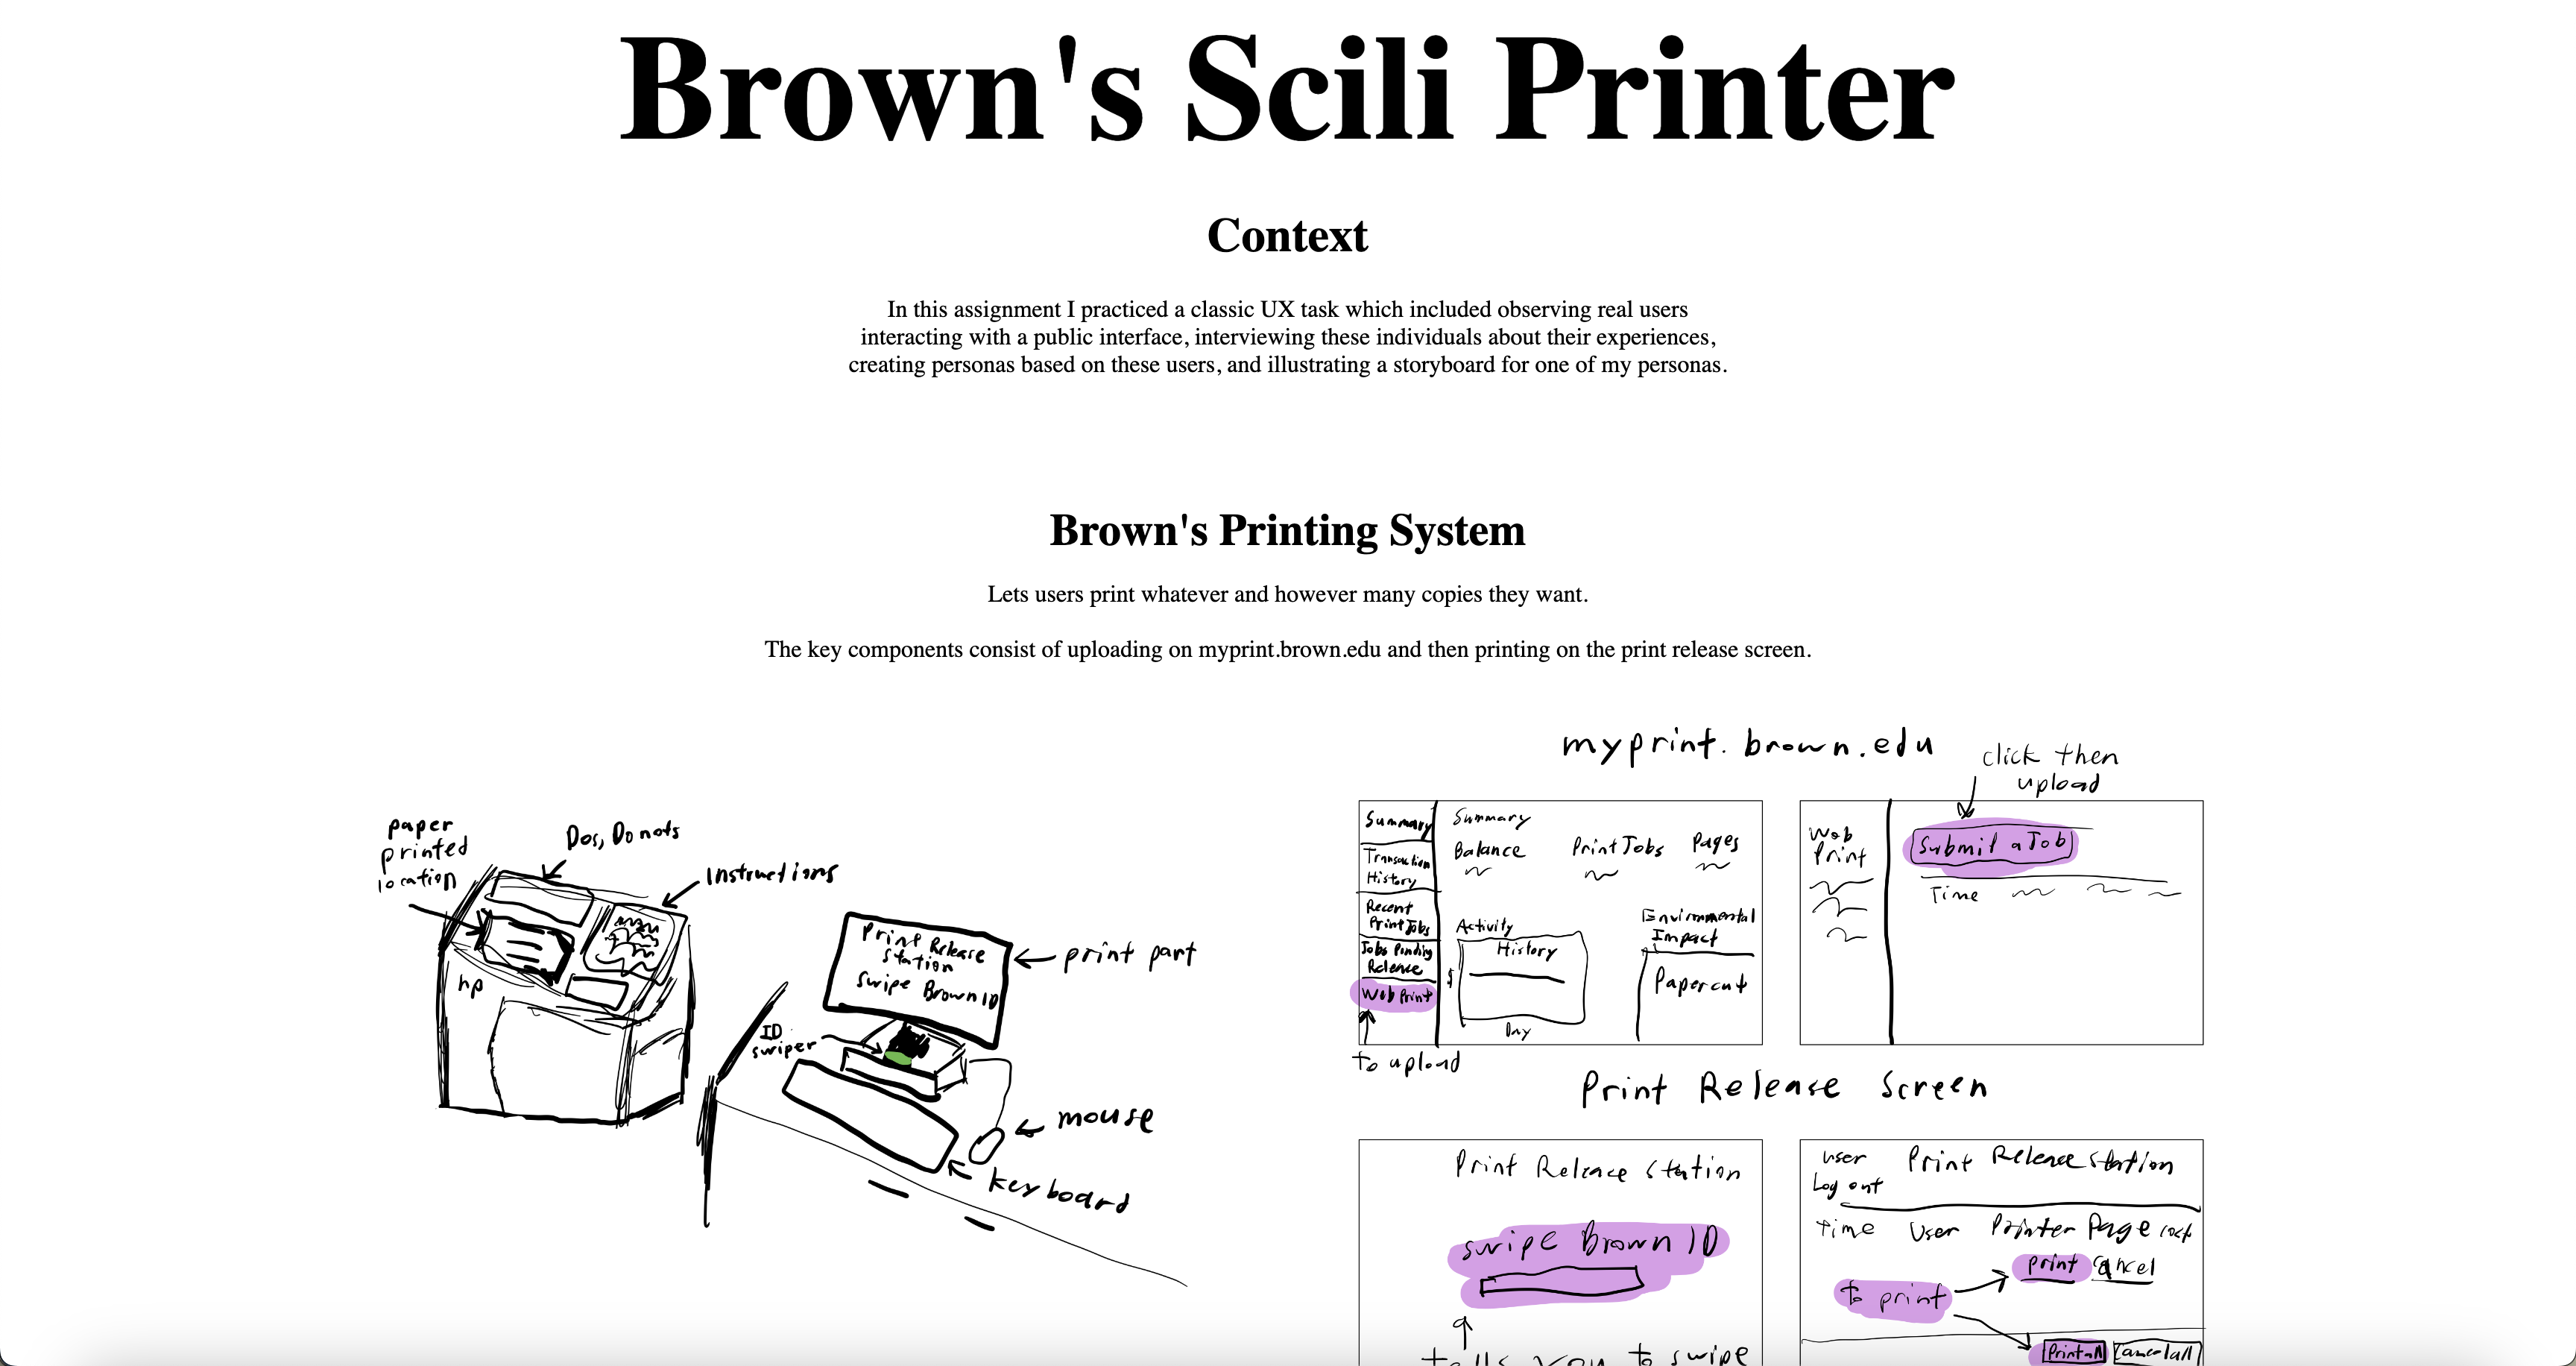 Brown's Scili Printer
Context
In this assignment I practiced a classic UX task which included observing real users
interacting with a public interface, interviewing these individuals about their experiences,
creating personas based on these users, and illustrating a storyboard for one of my personas.
Brown's Printing System
Lets users print whatever and however many copies they want.
The key components consist of uploading on myprint.brown.edu and then printing on the print release screen.
paper
printed
location
Dos, Do nots
Instructions
hp
Print Release
Station
Swipe Brown ID
print part
ID
swiper
mouse
keyboard
myprint.brown.edu
click then
upload
Summary
Transaction
History
Recent
Print Jobs
Jobs Pending
Release
Web Print
to upload
Summary
Balance
Print Jobs
Pages
Activity
History
$
Day
Environmental
Impact
Papercut
Web
Print
Submit a Job
Time
Print Release Screen
Print Release Station
swipe Brown ID
tells you to swipe
user
Log out
Print Release Station
Time User Printer Page cost
print cancel
to print
Print all Cancel all